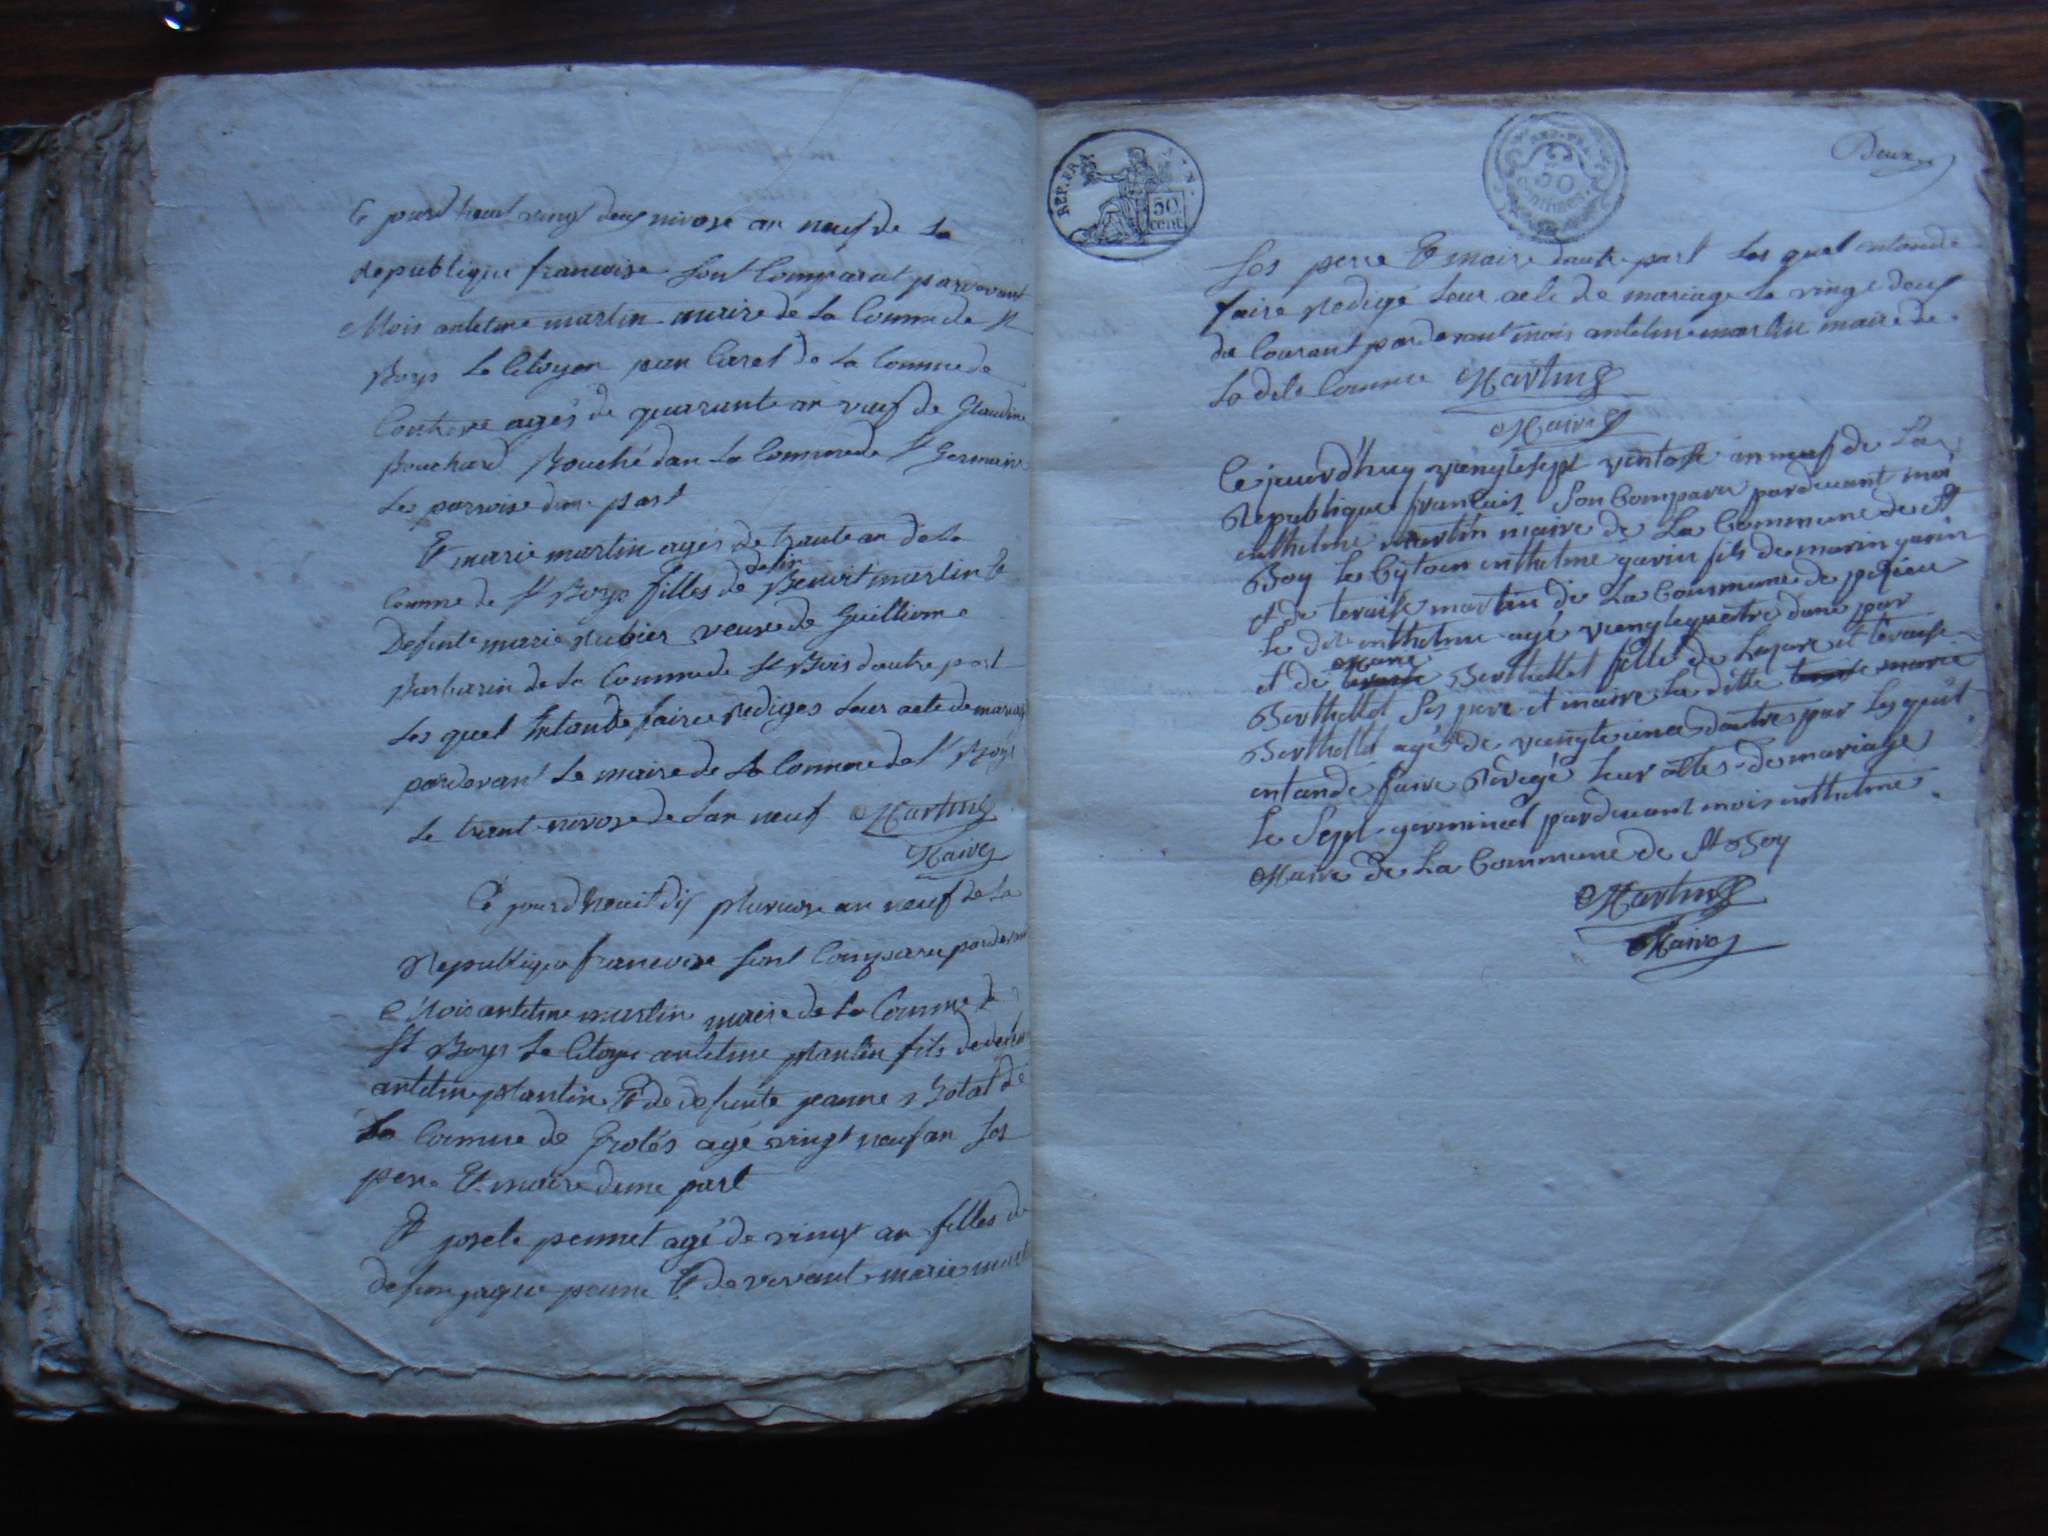 Ce jourd heut vingt deux nivose an neuf de la
Republique francoise sont Comparut pardevant
Mois antelme martin maire de la Commune de St
Boys le Citoyen jean Curet de la Commune de
agés de quarante an veuf de Glaudine
Bouchard Bouché dan la Commune de St Germain
Les parroise dune part
Et marie martin agés de trante an de la
defun
Comune de St Boys filles de Benoit martin &
Defunte marie Rubier veuve de Guilliome
Barbarin de la Commune de St Bois dautre part
Les quel Entande faire rediges leur acte de mariage
pardevant le maire de la Commune de St Boys
le trent nivose de lan neuf Martin
Maire
Ce jourd heuit dix pluviose an neuf de la
Republique francoise sont Comparu pardevant
Mois antelme martin maire de la Commune de
St Boys le Citoyen antelme plantin fils de defun
antelme plantin Et de defunte jeanne de
La Commune de Grolés agé vingt neuf an ses
pere Et maire dune part
Et josete pennet agé de vingt an filles de
defun jaque penne Et de vivant marie
REP. FRA.
50
cent.
REP. FRA.
50
centimes
Deux
Ses pere Et maire dautre part les quel entande
faire redigé leur acte de mariage le vingt deux
du Courant pardevant mois antelme martin maire de
La dite Commune Martin
Maire
Ce jourd'huy vengtesept ventose an neuf de La
Republique francais son Comparu parduant moi
anthelme martin maire de La Commune de St
Boy le Cytoien anthelme gavin fils de marin gavin
et de teraise martin de La Commune de pezieu
le dit anthelme agé vengtequatre dune par
Marie
et de Berthellet fille de Lazare et teraise
Berthellet ses pere et maire La ditte marie
Berthellet agé de vengte dautre par les quel
entande faire Redegé leur actes de mariage
le Sept germinal parduant mois anthelme
Maire de La Commune de St Boy
Martin
Maire